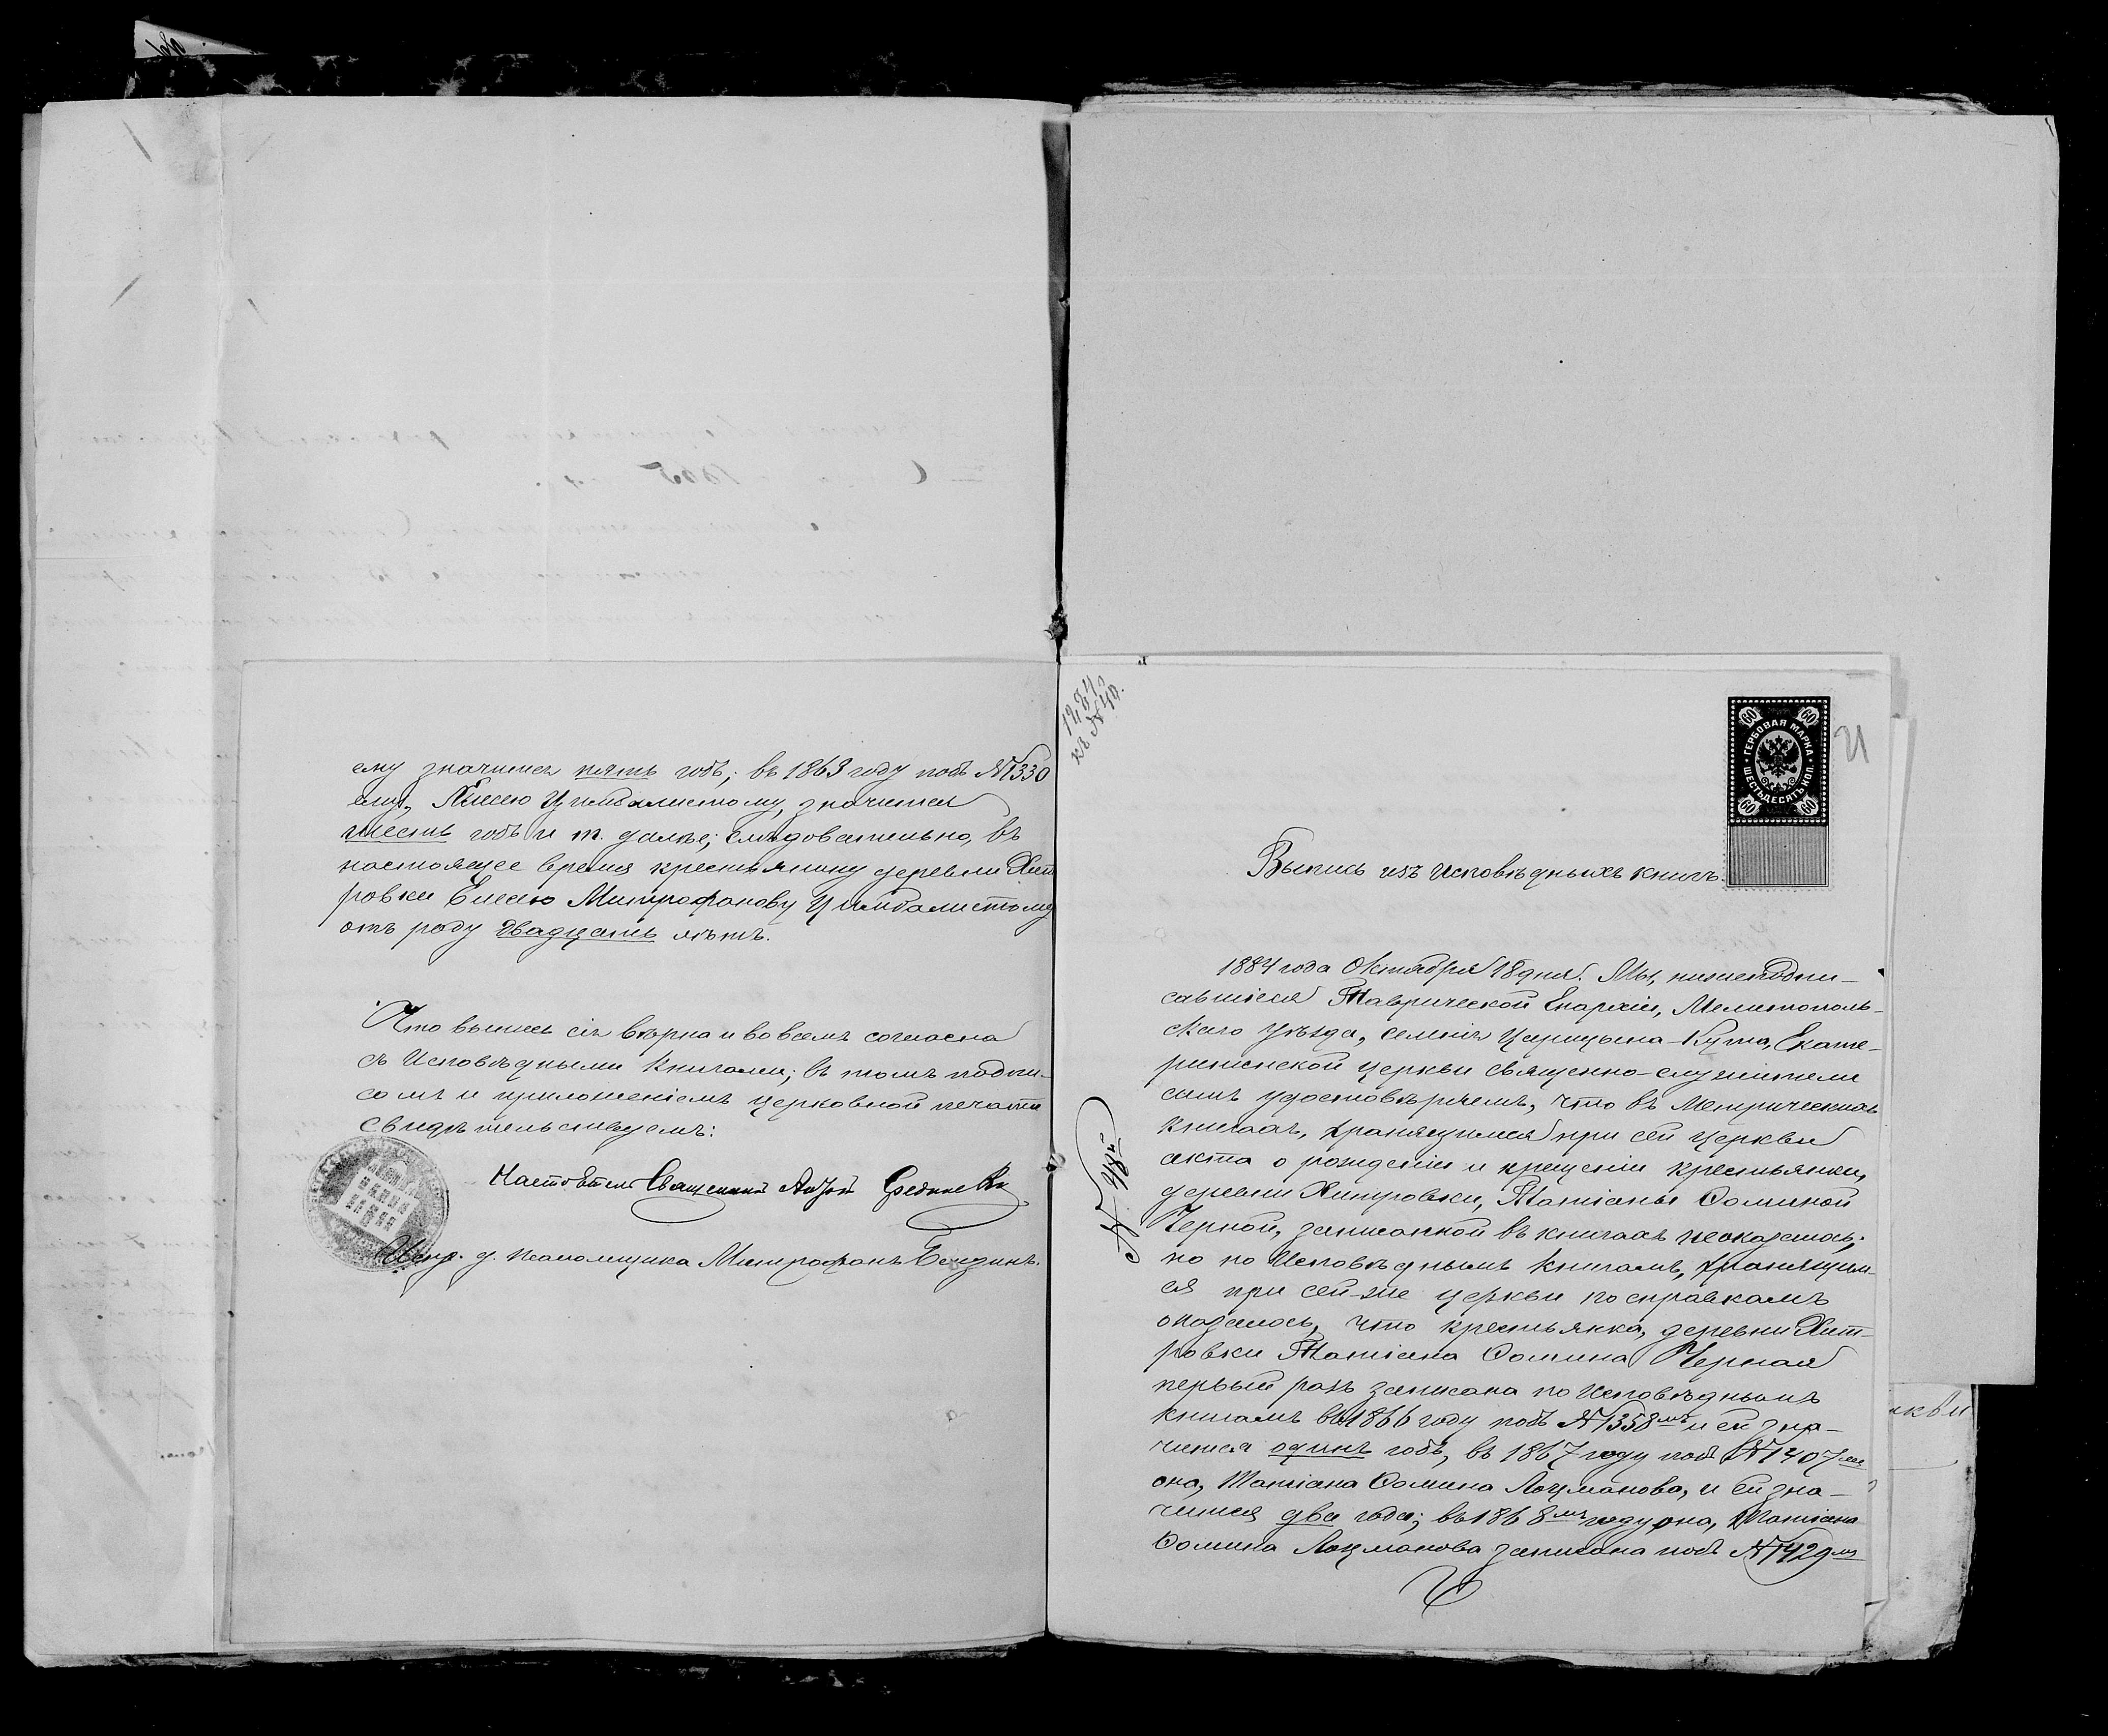 ему значится пять годъ; въ 1863 году подъ №1330
ему, Елисею Цимбалистому, значится
шесть годъ и т. далѣе; слѣдовательно, въ
настоящее время крестьянину деревни Хит
ровки Елисею Митрофанову Цимбалистому
отъ роду двадцать лѣтъ.
Что выпись сія вѣрна и во всемъ согласна
съ Исповѣдными книгами; въ томъ подпи-
сомъ и приложеніемъ церковной печати
свидѣтельствуемъ:
Настоятель Священникъ
Испр. д. псаломщика Митрофанъ
1234
къ № 40.
21
60 60
ГЕРБОВАЯ МАРКА
ШЕСТЬДЕСЯТЪ КОП.
60 60
Выпись изъ Исповѣдныхъ книгъ.
1884 года Октября 18 дня. Мы, нижеподпи-
савшіеся Таврической Епархіи, Мелитополь-
скаго уѣзда, селенія Царицына-Кута, Екате-
рининской церкви священно-служители
симъ удостовѣряемъ, что въ Метрическихъ
книгахъ, хранящимся при сей церкви
акта о рожденіи и крещеніи крестьянки,
деревни Хитровки, Татіаны Фоминой
Черной, записанной въ книгахъ неоказалось;
но по Исповѣднымъ книгамъ, хранящим-
ся при сей-же церкви по справкамъ
оказалось, что крестьянка, деревни Хит-
ровки Татіана Фомина Черная
первый разъ записана по Исповѣднымъ
книгамъ въ 1866 году подъ №1358мъ и ей зна-
чится одинъ годъ, въ 1867 году подъ №1407мъ
она, Татіана Фомина Лоцманова, и ей зна-
чится два года; въ 1868мъ году она, Татіана
Фомина Лоцманова записана подъ №1429мъ
№ 48й